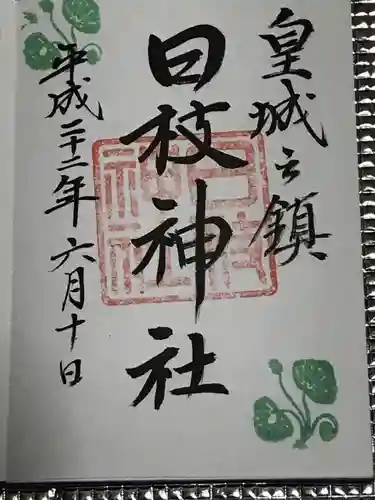 皇城之鎮
日枝神社
平成二十二年六月十日